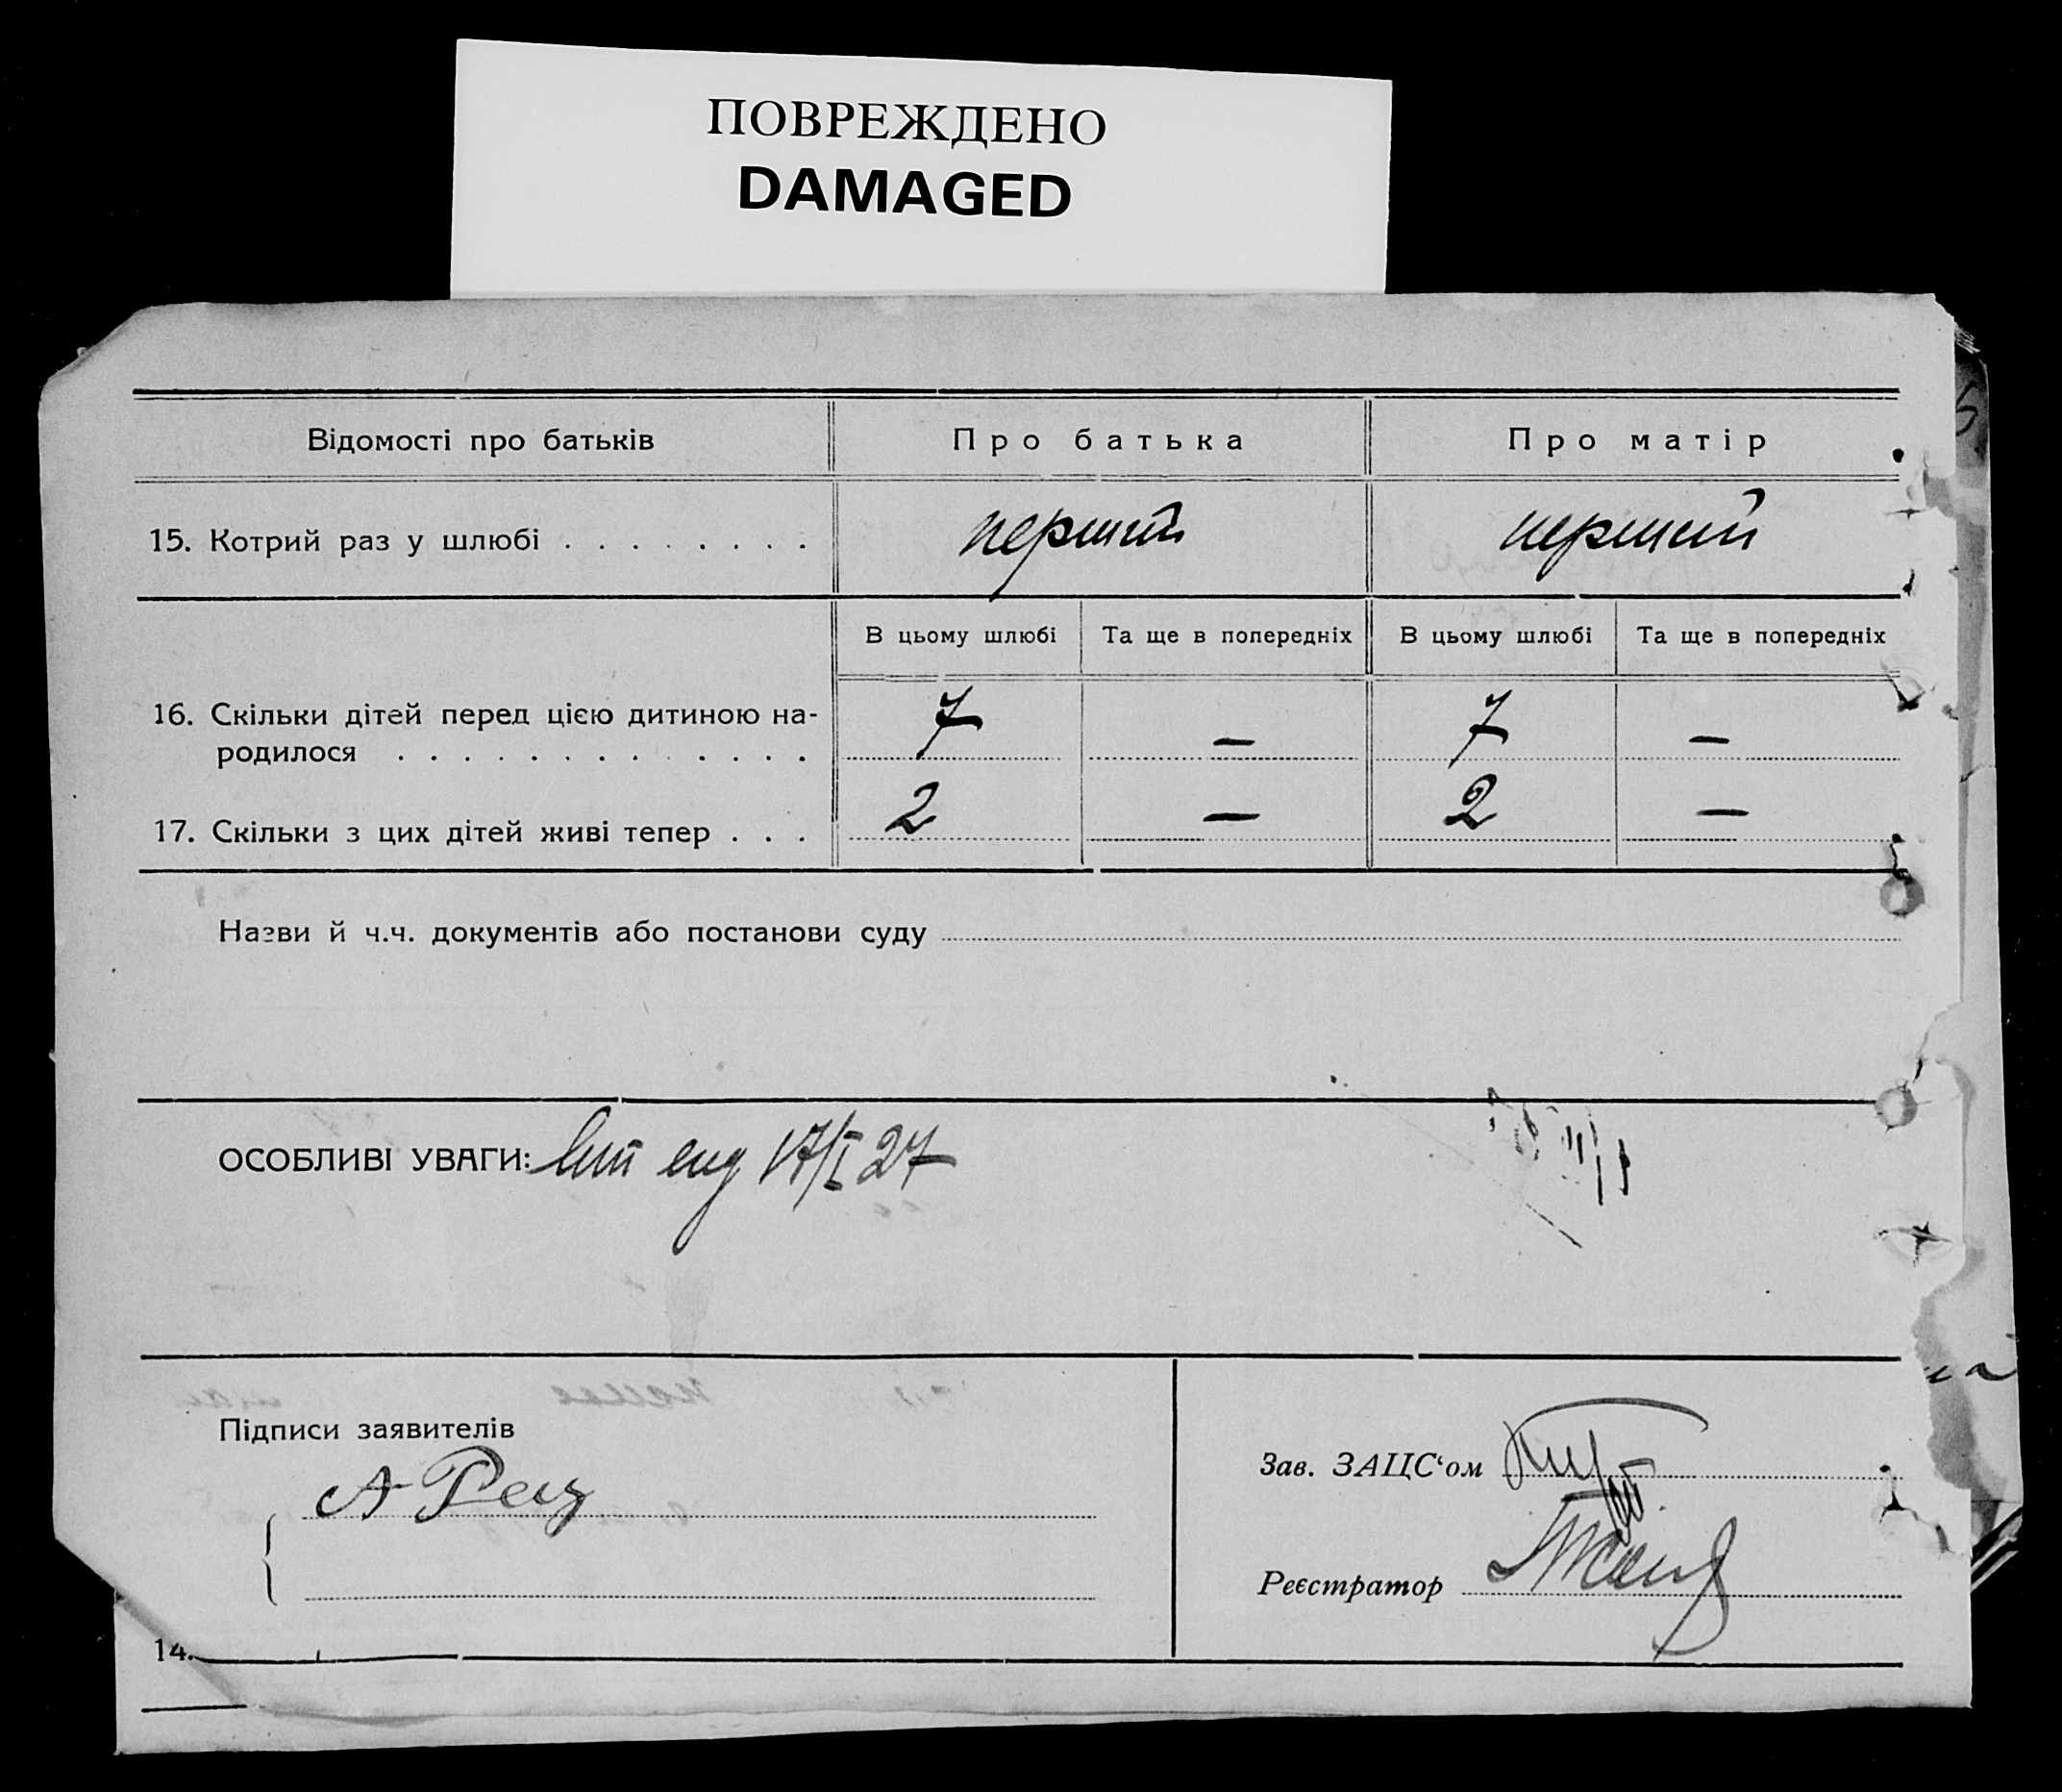 ПОВРЕЖДЕНО
DAMAGED
Відомості про батьків
Про батька
Про матір
15. Котрий раз у шлюбі . . . . . . . .
перший
перший
В цьому шлюбі
Та ще в попередніх
В цьому шлюбі
Та ще в попередніх
16. Скільки дітей перед цією дитиною на-
родилося . . . . . . . . . . . . .
7
—
7
—
17. Скільки з цих дітей живі тепер . . .
2
—
2
—
Назви й ч.ч. документів або постанови суду
ОСОБЛИВІ УВАГИ: 17/I 27
Підписи заявителів
Зав. ЗАЦС‘ом
А
Реєстратор
14.